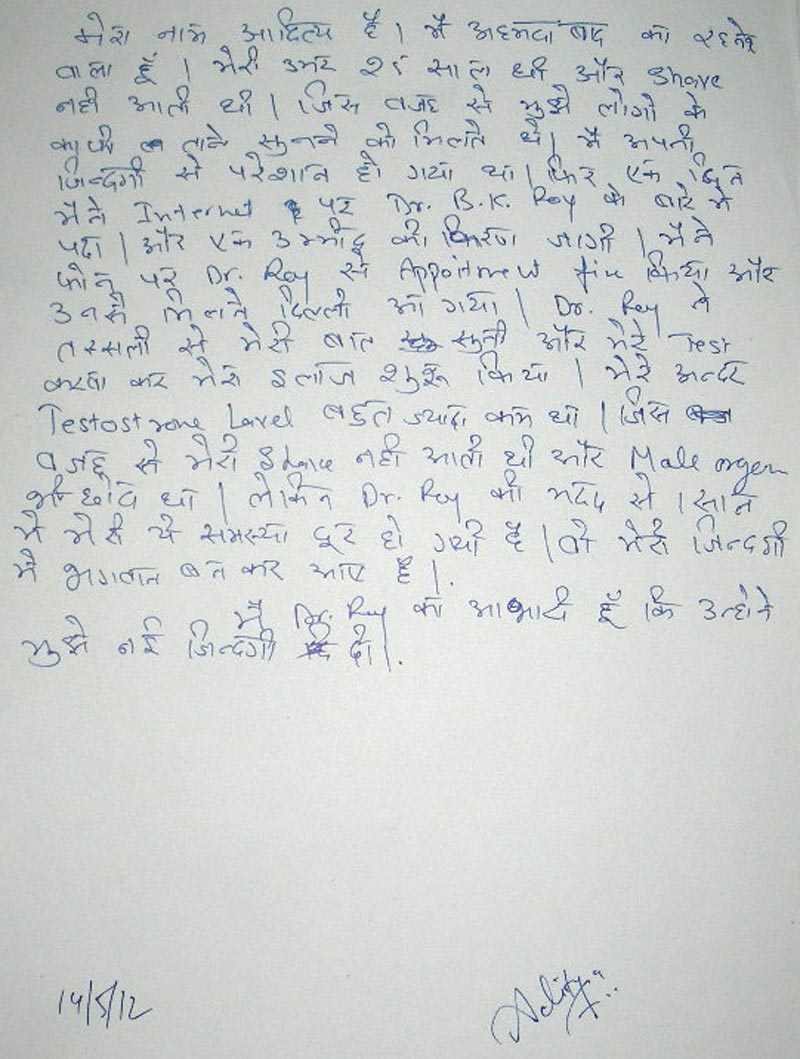 मेरा नाम आदित्य है। मैं अहमदाबाद का रहने
वाला हूँ। मेरी उमर २१ साल थी और shave
नही आती थी। जिस वजह से मुझे लोगो के
काफी ताने सुनने को मिलते थे। मै अपनी
जिन्दगी से परेशान हो गया था। फिर एक दिन
मैंने Internet पर Dr. B.K. Roy के बारे मे
पढा। और एक उम्मीद की किरण जागी। मैंने
फोन पर Dr. Roy से Appointment fix किया और
उनसे मिलने दिल्ली आ गया। Dr. Roy ने
तस्सली से मेरी बात सुनी और मेरे Test
करवा कर मेरा इलाज शुरू किया। मेरे अन्दर
Testostrone Level बहुत ज्यादा कम था। जिस
वजह से मेरी Shave नही आती थी और Male orgen
भी छोटा था। लेकिन Dr. Roy की मदद से 1 साल
मे मेरी ये समस्या दूर हो गयी है। वो मेरी जिन्दगी
मै भगवान बन कर आए है।
मै Dr. Roy का आभारी हूँ कि उन्होने
मुझे नई जिन्दगी दी।
14/5/12 Aditya